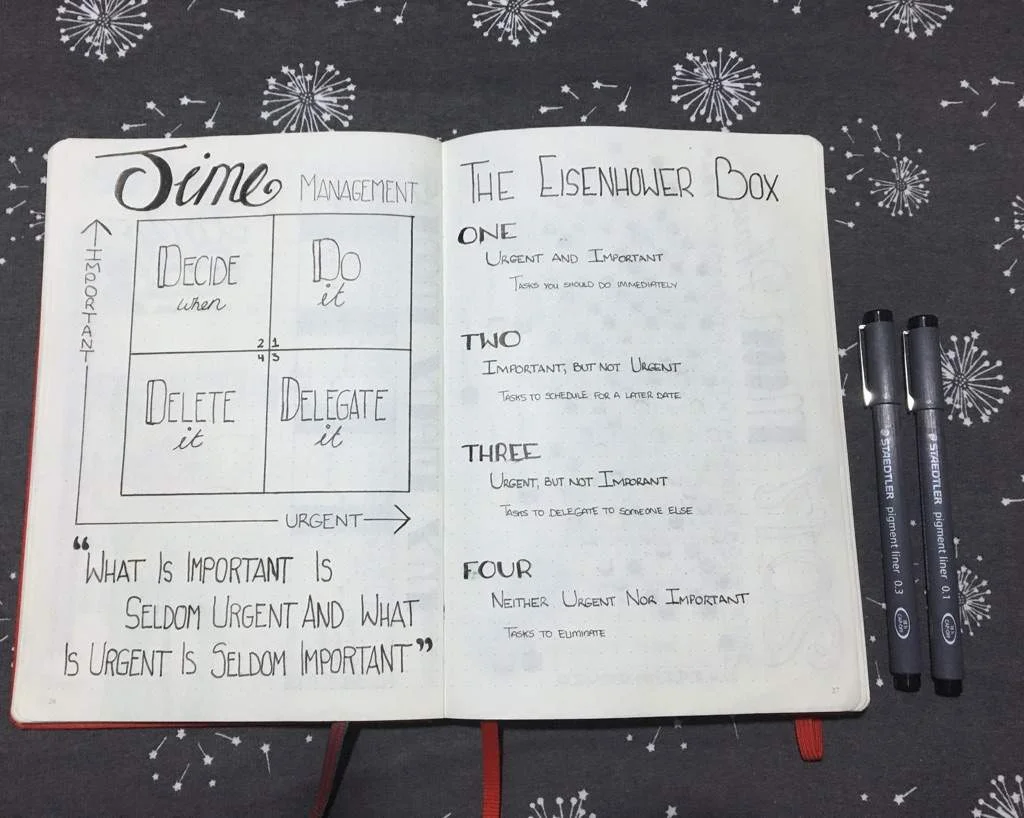 Time MANAGEMENT
IMPORTANT
DECIDE
when
DO
it
2 1
4 3
DELETE
it
DELEGATE
it
URGENT
“WHAT IS IMPORTANT IS
SELDOM URGENT AND WHAT
IS URGENT IS SELDOM IMPORTANT”
26
THE EISENHOWER BOX
ONE
URGENT AND IMPORTANT
TASKS YOU SHOULD DO IMMEDIATELY
TWO
IMPORTANT, BUT NOT URGENT
TASKS TO SCHEDULE FOR A LATER DATE
THREE
URGENT, BUT NOT IMPORANT
TASKS TO DELEGATE TO SOMEONE ELSE
FOUR
NEITHER URGENT NOR IMPORTANT
TASKS TO ELIMINATE
27
STAEDTLER pigment liner 0.3
STAEDTLER pigment liner 0.1